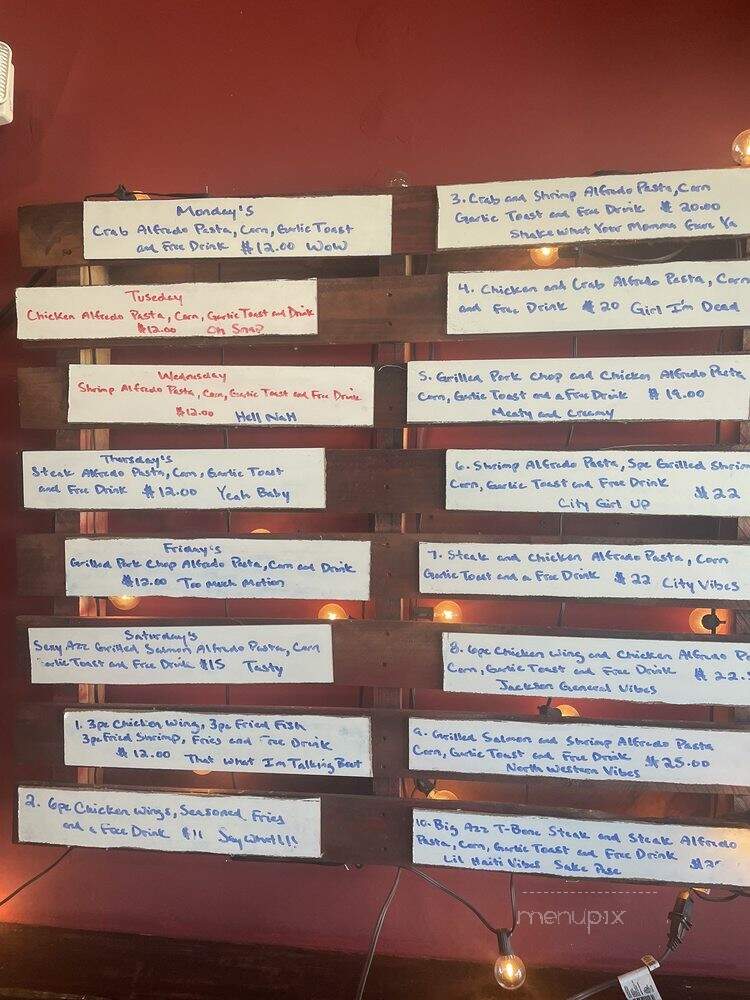 Monday's
Crab Alfredo Pasta, Corn, Garlic Toast
and Free Drink $12.00 WOW
Tuseday
Chicken Alfredo Pasta, Corn, Garlic Toast and Drink
$12.00 Oh Snap
Wednesday
Shrimp Alfredo Pasta, Corn, Garlic Toast and Free Drink
$12.00 Hell Nah
Thursday's
Steak Alfredo Pasta, Corn, Garlic Toast
and Free Drink $12.00 Yeah Baby
Friday's
Grilled Pork Chop Alfredo Pasta, Corn and Drink
$12.00 Too Much Motion
Saturday's
Sexy Azz Grilled Salmon Alfredo Pasta, Corn
Garlic Toast and Free Drink $15 Tasty
1. 3pc Chicken Wing, 3pc Fried Fish
3pc Fried Shrimp, Fries and Free Drink
$12.00 That What I'm Talking Bout
2. 6pc Chicken Wings, Seasoned Fries
and a Free Drink $11 Say What!!!
3. Crab and Shrimp Alfredo Pasta, Corn
Garlic Toast and Free Drink $20.00
Shake What Your Momma Gave Ya
4. Chicken and Crab Alfredo Pasta, Corn
and Free Drink $20 Girl I'm Dead
5. Grilled Pork Chop and Chicken Alfredo Pasta
Corn, Garlic Toast and a Free Drink $19.00
Meaty and Creamy
6. Shrimp Alfredo Pasta, 5pc Grilled Shrim
Corn, Garlic Toast and Free Drink $22
City Girl UP
7. Steak and Chicken Alfredo Pasta, Corn
Garlic Toast and a Free Drink $22 City Vibes
8. 6pc Chicken Wing and Chicken Alfredo Pa
Corn, Garlic Toast and Free Drink $22.
Jackson General Vibes
9. Grilled Salmon and Shrimp Alfredo Pasta
Corn, Garlic Toast and Free Drink $25.00
North Western Vibes
10. Big Azz T-Bone Steak and Steak Alfredo
Pasta, Corn, Garlic Toast and Free Drink
Lil Haiti Vibes Sake Pase
menupix